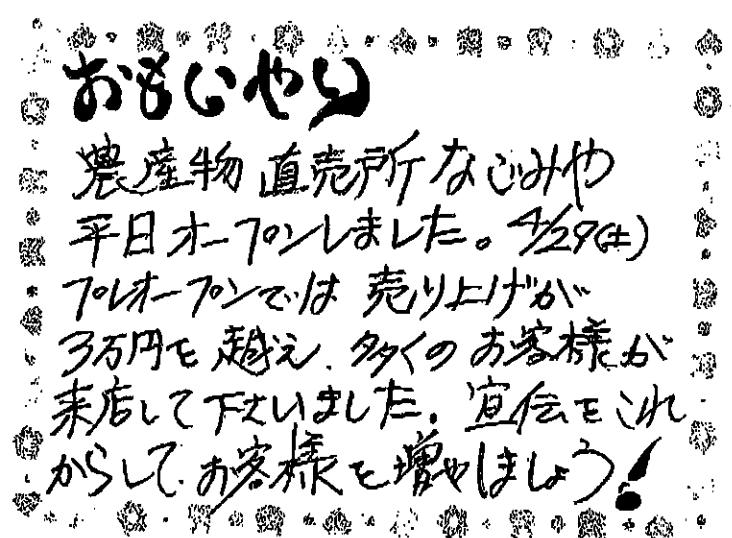 おもいやり
農産物直売所なごみや
平日オープンしました。4/29(土)
プレオープンでは売り上げが
3万円を越え、多くのお客様が
来店して下さいました。宣伝をこれ
からして、お客様を増やしましょう!